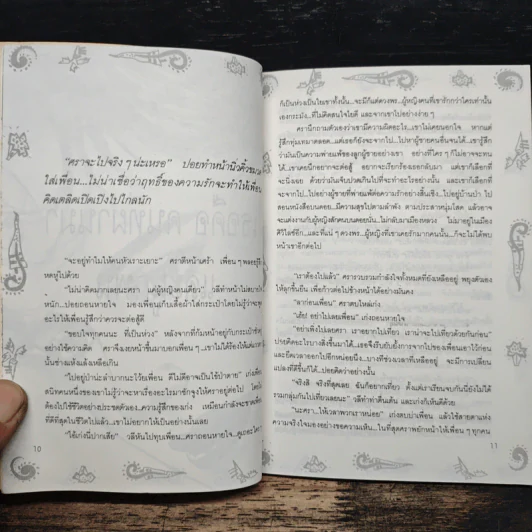 "ตราจะไปจริง ๆ น่ะเหรอ" ปอยทำหน้านิ่วคิ้วขมวด
ใส่เพื่อน...ไม่น่าเชื่อว่าฤทธิ์ของความรักจะทำให้เพื่อน
คิดเตลิดเปิดเปิงไปไกลนัก
"จะอยู่ทำไมให้คนหัวเราะเยาะ" คราตีหน้าเศร้า เพื่อน ๆ พลอย
หดหู่ไปด้วย
"ไม่น่าคิดมากเลยนะครา แค่ผู้หญิงคนเดียว" วลีทำหน้าไม่สบาย
หนัก...ปอยถอนหายใจ มองเพื่อนเก็บเสื้อผ้าใส่กระเป๋าโดยไม่รู้ว่าจะ
อะไรให้เพื่อนรู้สึกว่าควรจะต่อสู้ดี
"ขอบใจทุกคนนะ ที่เป็นห่วง" หลังจากที่ก้มหน้าอยู่กับกระเป๋า
อย่างใช้ความคิด คราจึงเงยหน้าขึ้นมาบอกเพื่อน ๆ...เขาไม่ได้ร้องไห้
นั้นช่างแห้งแล้งเหลือเกิน
"ไปอยู่ป่าน่ะลำบากนะโว้ยเพื่อน ดีไม่ดีอาจเป็นไข้ป่าตาย" เก่ง
ดนิรคนหนึ่งของเขาไม่รู้ว่าจะหาเรื่องอะไรมาชักจูงให้คราอยู่ต่อไป
ต้องไปใช้ชีวิตอย่างประชดตัวเอง...ความรู้สึกของเก่ง เหมือนกำลังจะขาด
ที่ดีที่สุดในชีวิตไปแล้ว...เขาไม่อยากให้เป็นอย่างนั้นเลย
"ไอ้เก่งนี่ปากเสีย" วลีหันไปทุบเพื่อน...คราถอนหายใจ...ดู
10
ก็เป็นห่วงเป็นใยเขาทั้งนั้น...จะมีก็แต่ดวงพร...ผู้หญิงคนที่เขารักกว่าใครเท่านั้น
เองกระมัง...ที่ไม่คิดสนใจไยดี และจากเขาไปอย่างง่าย ๆ
ครานึกถามตัวเองว่าเขามีความผิดอะไร...เขาไม่เคยนอกใจ หากแต่
รู้สึกทุ่มเทมาตลอด...แต่เธอก็ยังจะจากเขาไป...ไปหาผู้ชายคนอื่นจนได้...เขารู้
ว่ามันเป็นความพ่ายแพ้ของลูกผู้ชายอย่างเขา อย่างที่ใคร ๆ ก็ไม่อาจจะทน
ได้...เขาเคยนึกอยากจะเรียกร้องให้เธอกลับมา แต่เขาก็เลือกที่
จะนิ่งเฉย ด้วยว่ามันเจ็บปวดเกินไปที่จะทำอะไรอย่างนั้น และเขาก็เลือกที่
จะจากไป...ไปอย่างผู้ชายที่พ่ายแพ้ต่อความรักอย่างสิ้นเชิง...ไปอยู่บ้านป่า ไป
สอนหนังสือบนดอย...มีความสุขไปตามลำพัง ตามประสาหนุ่มโสด แล้วอาจ
จะแต่งงานกับผู้หญิงสักคนบนดอยนั่น...ไม่กลับมาเมืองหลวง ไม่มาอยู่ในเมือง
ศิวิไลซ์อีก...และที่แน่ ๆ ดวงพร...ผู้หญิงที่เขาเคยรักมากคนนั้น...ก็จะไม่ได้พบ
หน้าเขาอีกต่อไป
"เราต้องไปแล้ว" ครารวบรวมกำลังใจทั้งหมดที่ยังเหลืออยู่ พยุงตัวเอง
ให้ลุกขึ้นยืน เพื่อก้าวต่อไปข้างหน้าได้อย่างมั่นคง
"ลาก่อนเพื่อน" คราตบไหล่เก่ง
"เฮ้ย! อย่าไปเลยเพื่อน" เก่งถอนหายใจ
"อย่าเพิ่งไปเลยครา เราอยากไปเที่ยว เราน่าจะไปเที่ยวด้วยกันก่อน"
"จริงสิ จริงที่สุดเลย ฉันก็อยากเที่ยว ตั้งแต่เราเรียนจบกันนี่ยังไม่ได้
รวมกลุ่มกันไปเที่ยวเลยนะ" วลีทำท่าตื่นเต้น และเก่งก็เห็นดีด้วย
"นะครา...ให้เวลาพวกเราหน่อย" เก่งตบบ่าเพื่อน แล้วใช้สายตาแห่ง
ความจริงใจมองอย่างขอความเห็น...ในที่สุดคราพยักหน้าให้เพื่อน ๆ ทุกคน
11